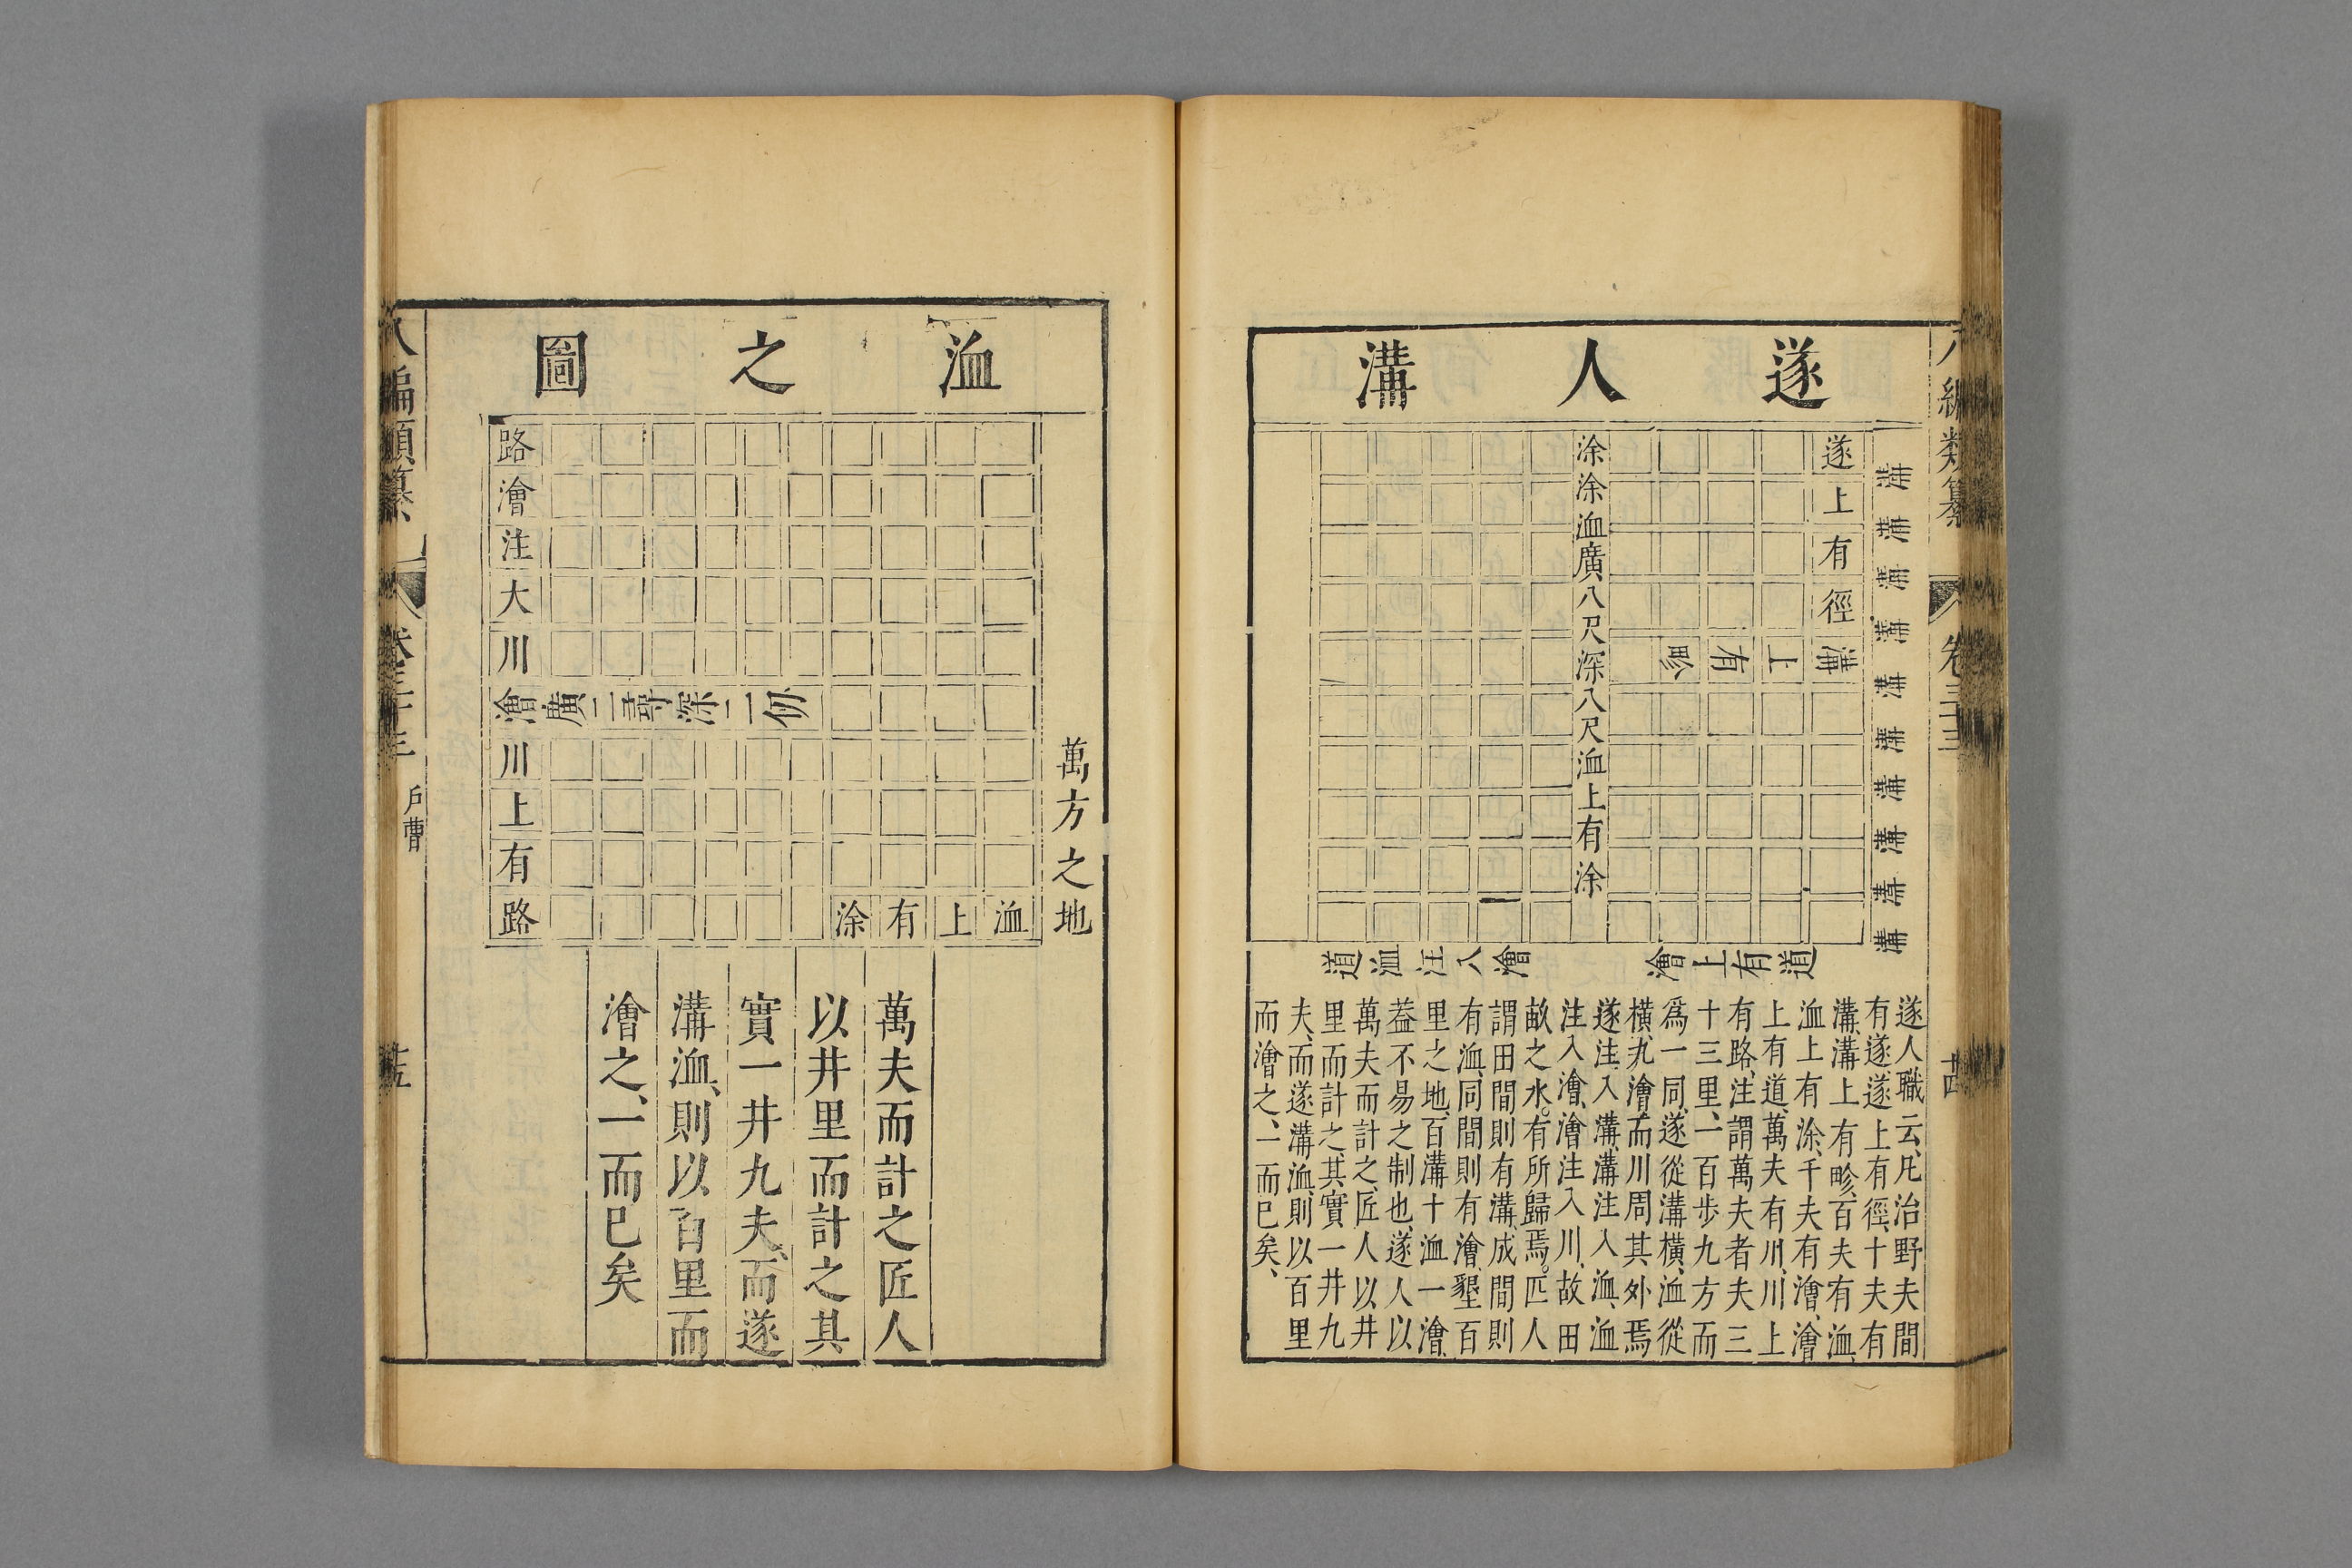 遂人溝
溝溝溝溝溝溝溝溝溝溝
遂上有徑
溝上有畛
涂涂洫廣八尺深八尺洫上有涂
澮上有道
道洫注入澮
遂人職云、凡治野夫間
有遂、遂上有徑、十夫有
溝、溝上有畛、百夫有洫、
洫上有涂、千夫有澮、澮
上有道、萬夫有川、川上
有路、注謂萬夫者、夫三
十三里、一百步、九方而
爲一同、遂從溝橫、洫從
橫、九澮而川周其外焉
遂注入溝、溝注入洫、洫
注入澮、澮注入川、故田
畝之水。有所歸焉。匠人
謂田間則有溝、成間則
有洫、同間則有澮、墾百
里之地、百溝十洫一澮、
葢不易之制也、遂人以
萬夫而計之、匠人以井
里而計之、其實一井九
夫、而遂溝洫、則以百里
而澮之、一而已矣、
八編類纂
卷三十三
十四
洫之圖
萬方之地
洫上有涂
澮廣二尋深二仞
路澮注大川
川上有路
萬夫而計之匠人
以井里而計之其
實一井九夫、而遂
溝洫、則以百里而
澮之、一而已矣
八編類纂
卷三十三
戶曹
十五